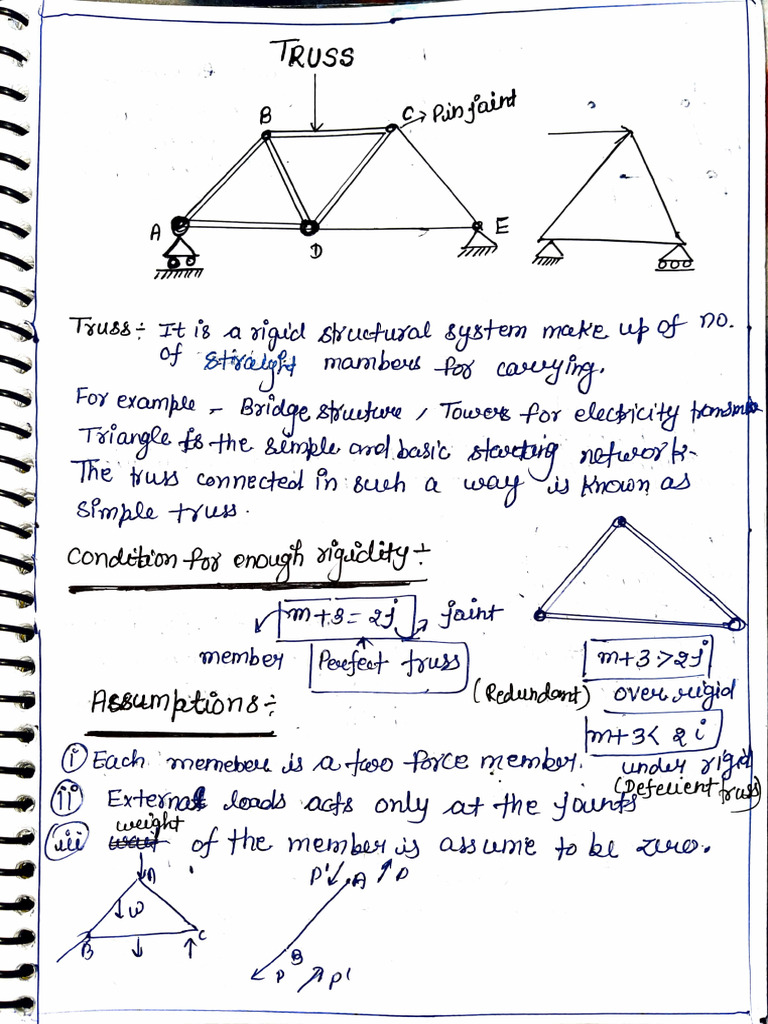 TRUSS
B
C → Pin jaint
A
D
E
Truss ÷ It is a rigid structural system make up of no.
of straight mambers for carrying.
For example - Bridge structure, Towers for electricity
Triangle is the simple and basic starting network.
The truss connected in such a way is known as
simple truss.
Condition for enough rigidity ÷
m+3=2j
jaint
member
Perefect truss
m+3>2j
(Redundant) over rigid
m+3<2i
under rigid
(Defecient truss)
Assumptions ÷
i Each memeber is a two force member.
ii External loads acts only at the jounts
iii weight of the member is assume to be zero.
A
W
B
C
P' A P
B
P P'